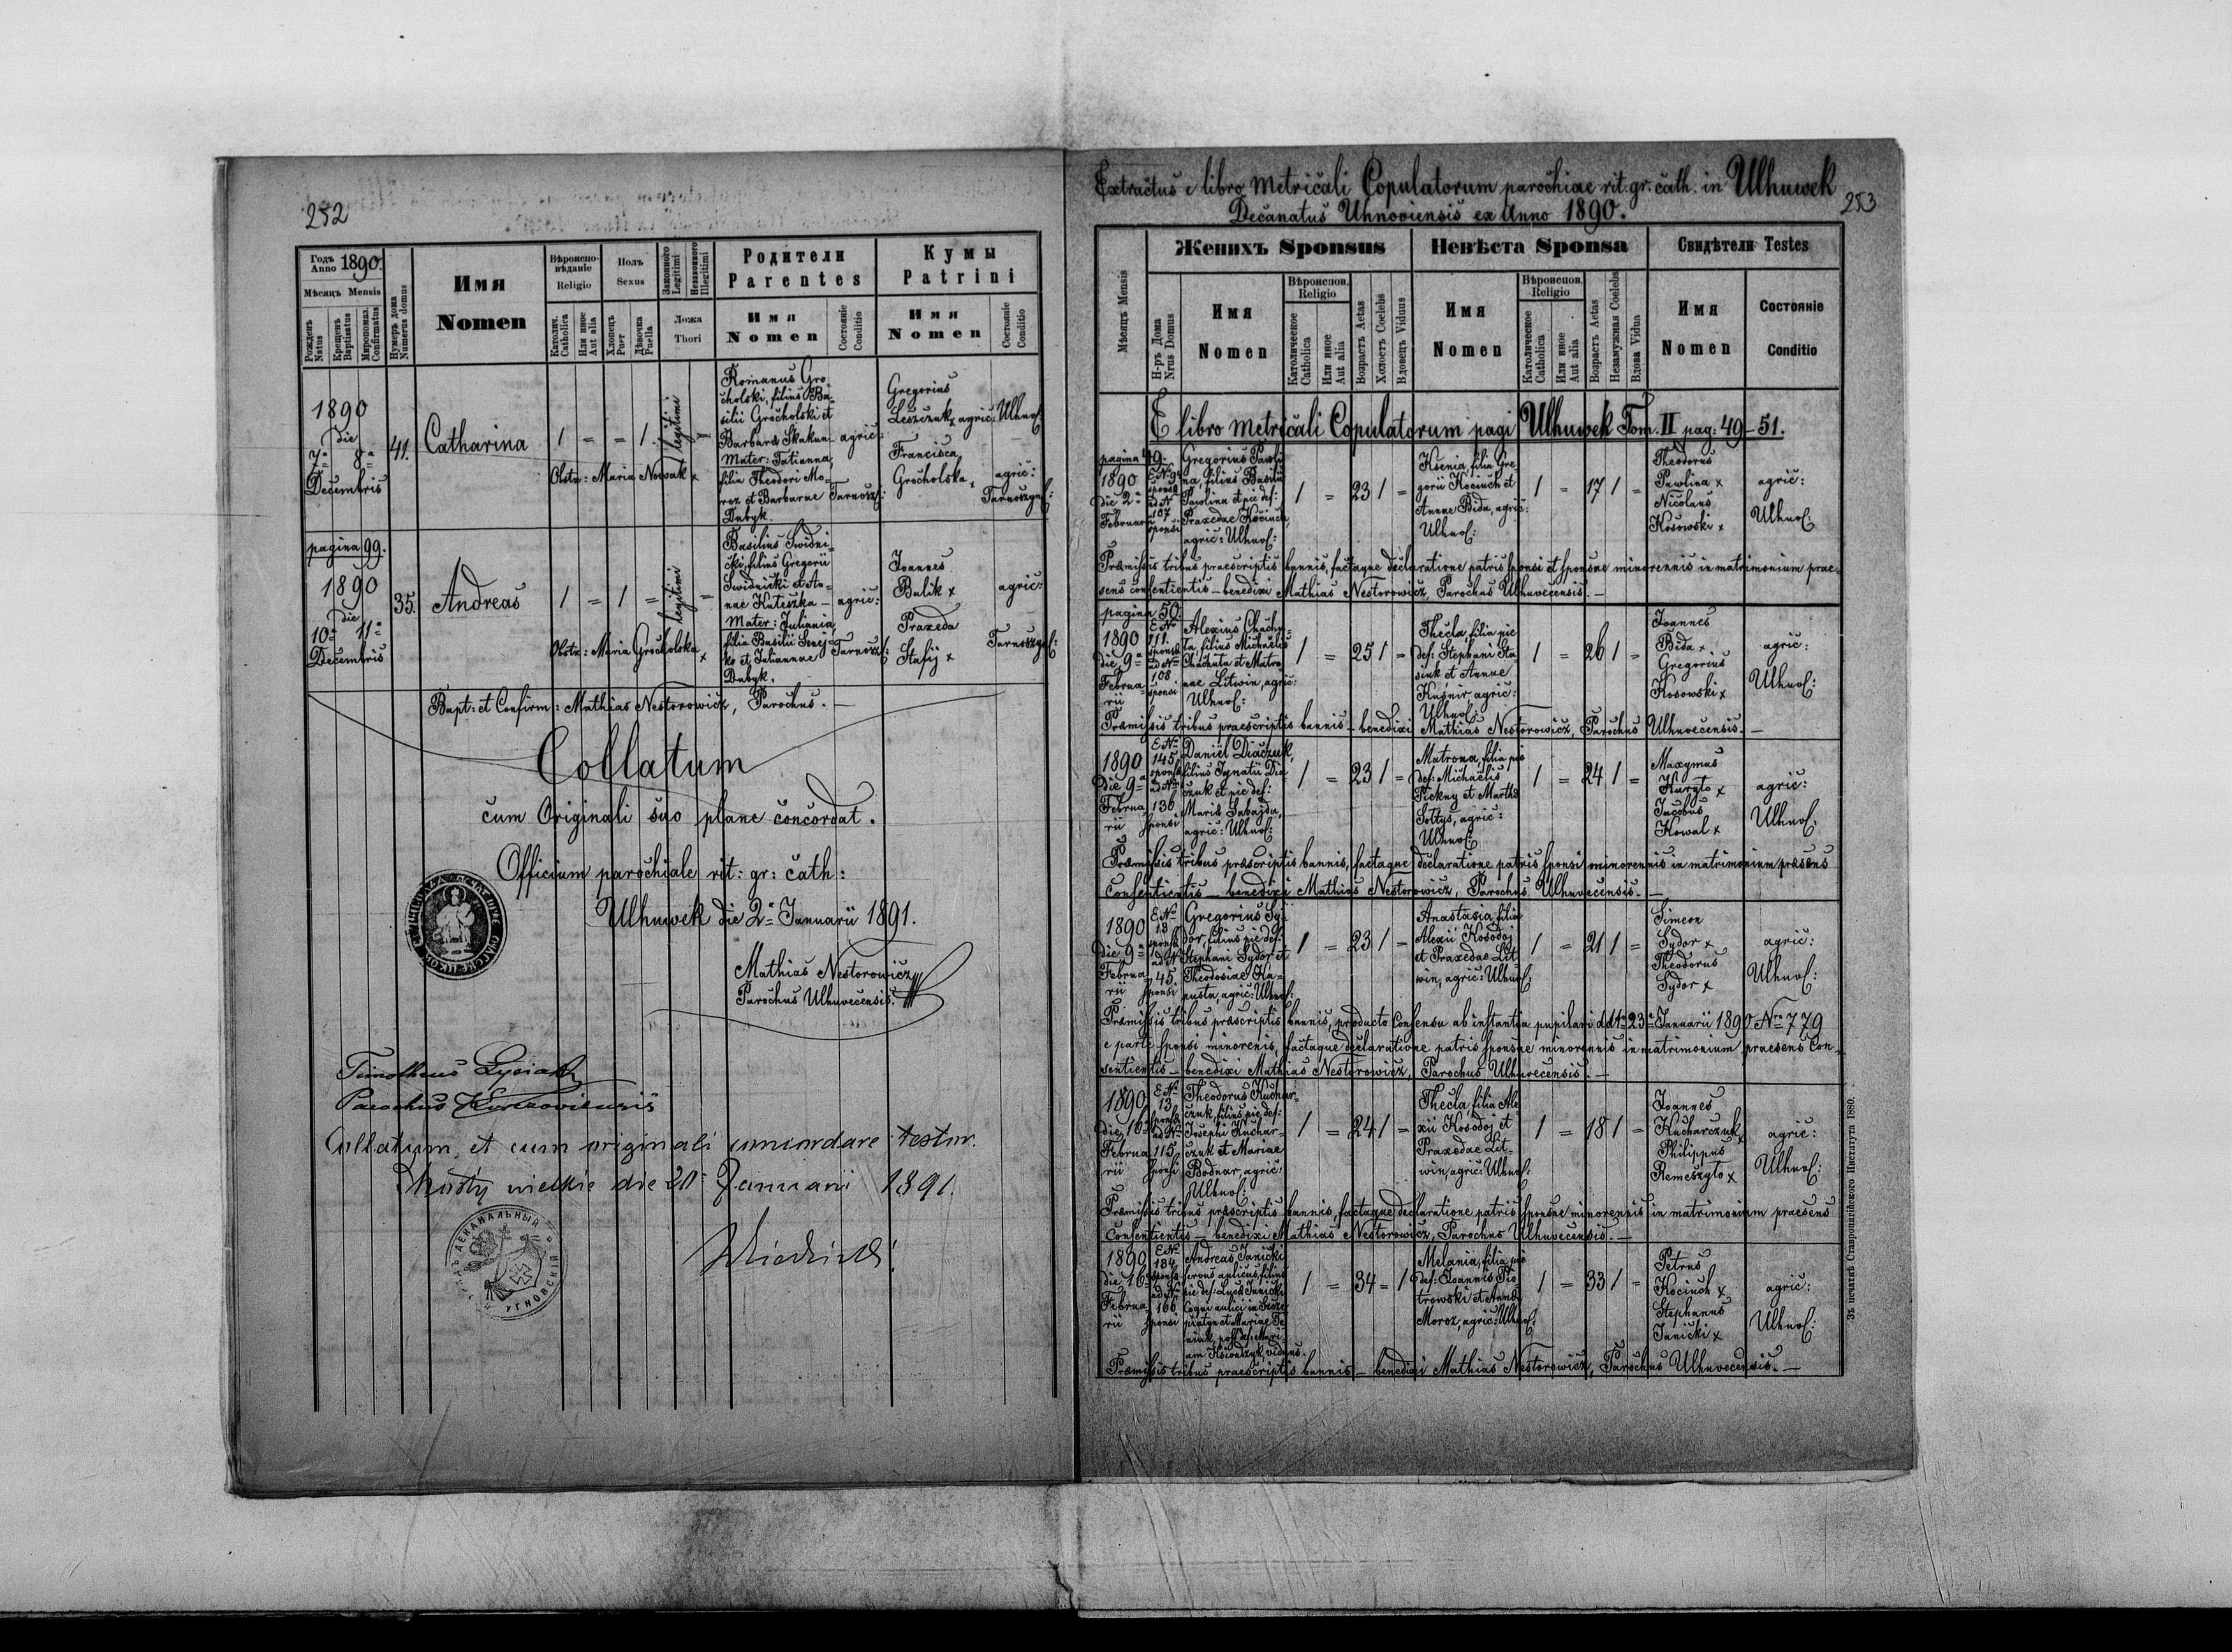 252
Годъ Anno 1890.
Мѣсяцъ Mensis
Рожденъ Natus
Крещенъ Baptisatus
Миропомаз. Confirmatus
Нумеръ дома Numerus domus
Имя
Nomen
Вѣроисповѣданіе
Religio
Католич. Catholica
Или иное Aut alia
Полъ
Sexus
Хлопецъ Puer
Дѣвочка Puella
Законного Legitimi
Незаконного Illegitimi
Ложа
Thori
Родители
Parentes
Имя
Nomen
Состояніе
Conditio
Кумы
Patrini
Имя
Nomen
Состояніе
Conditio
1890
die
7ª 8ª
Decembris
41.
Catharina
1 = = 1 legitimi =
Obstr: Maria Nowak x
Romanus Gro-
cholski, filius Ba-
silii Grocholski et
Barbara Skakun - agric:
Mater: Tatianna,
filia Theodori Mo-
roz et Barbarae Tarnosz:
Dubyk.
Gregorius
Leszczuk x agric: Ulhuv:
Francisca
Grocholska, agric:
Tarnoszyn:
pagina 99.
1890
die
10ª 11ª
Decembris
35.
Andreas
1 = 1 = legitimi =
Obstr: Maria Grocholska x
Basilius Swidni-
cki, filius Gregorii
Swidnicki et An-
nae Kuteszka - agric:
Mater: Juliania,
filia Basilii Senj-
ko et Juliannae Tarnosz:
Dubyk.
Joannes
Bulik x agric:
Praxeda
Stasij x Tarnoszyn:
Bapt: et Confirm: Mathias Nestorowicz, Parochus. —
Collatum
cum Originali suo plane concordat.
Officium parochiale rit: gr: cath:
Ulhuwek die 2ª Januarii 1891.
Mathias Nestorowicz
Parochus Ulhuvecensis.
Timotheus
Parochus
Collatum et cum originali concordare testor.
Mosty wielkie die 20ª Januarii 1891.
ДЕКАНАЛЬНЫЙ
УГНОВСКІЙ
Extractus e libro Metricali Copulatorum parochiae rit. gr. cath. in Ulhuwek
Decanatus Uhnoviensis ex Anno 1890.
253
Мѣсяцъ Mensis
Женихъ Sponsus
Н-ръ Дома Nrus Domus
Имя
Nomen
Вѣроиспов.
Religio
Католическое Catholica
Или иное Aut alia
Возрастъ Aetas
Холостъ Coelebs
Вдовецъ Viduus
Невѣста Sponsa
Имя
Nomen
Вѣроиспов.
Religio
Католическое Catholica
Или иное Aut alia
Возрастъ Aetas
Незамужная Coelebs
Вдова Vidua
Свидѣтели Testes
Имя
Nomen
Состояніе
Conditio
E libro metricali Copulatorum pagi Ulhuwek Tom. II pag: 49 - 51.
pagina 49.
1890
die 2ª
Februarii
E Nº 9
sponsae
ad Nº
107
sponsi
Gregorius Pawli-
na, filius Basilii
Pawlina et pie def:
Praxedae Kociuch,
agric: Ulhuv:
1 = 23 1 =
Ksenia, filia Gre-
gorii Kociuch et
Annae Bida, agric:
Ulhuv:
1 = 17 1 =
Theodorus
Pawlina x
Nicolaus
Kosowski x
agric:
Ulhuv:
Praemissis tribus praescriptis bannis, factaque declaratione patris sponsi et sponsae minorennis in matrimonium prae-
sens consentientis - benedixi Mathias Nestorowicz, Parochus Ulhuvecensis. —
pagina 50.
1890
die 9ª
Februa
rii
E Nº
111.
sponsae
ad Nº
108
sponsi
Alexius Chachu-
ta, filius Michaëlis
Chachuta et Matro-
nae Litwin, agric:
Ulhuv:
1 = 25 1 =
Thecla, filia pie
def: Stephani Sta-
siuk et Annae
Kuśnir, agric:
Ulhuv:
1 = 26 1 =
Joannes
Bida x
Gregorius
Kosowski x
agric:
Ulhuv:
Praemissis tribus praescriptis bannis - benedixi Mathias Nestorowicz, Parochus Ulhuvecensis. —
1890
die 9ª
Februa
rii
E Nº
145
sponsae
ad Nº
136
sponsi
Daniel Diaczuk,
filius Ignatii Dia-
czuk et pie def:
Mariae Sabajda,
agric: Ulhuv:
1 = 23 1 =
Matrona, filia pie
def: Michaëlis
Piekny et Martha
Sołtys, agric:
Ulhuv:
1 = 24 1 =
Maxymus
Kuryło x
Jacobus
Kowal x
agric:
Ulhuv:
Praemissis tribus praescriptis bannis, factaque declaratione patris sponsi minorennis in matrimonium praesens
consentientis - benedixi Mathias Nestorowicz, Parochus Ulhuvecensis. —
1890
die 9ª
Februa
rii
E Nº
13
sponsae
ad Nº
45.
sponsi
Gregorius Sy-
dor, filius pie def:
Stephani Sydor et
Theodosiae Ka-
pusta, agric: Ulhuv:
1 = 23 1 =
Anastasia, filia
Alexii Kosodoj
et Praxedae Lit-
win, agric: Ulhuv:
1 = 21 1 =
Simeon
Sydor x
Theodorus
Sydor x
agric:
Ulhuv:
Praemissis tribus praescriptis bannis, producto Consensu ab instantia pupilari ddto 23ª Januarii 1890 Nro 779
e parte sponsi minorenis, factaque declaratione patris sponsae minorennis in matrimonium praesens con-
sentientis - benedixi Mathias Nestorowicz, Parochus Ulhuvecensis. —
1890
die 16ª
Februa
rii
E Nº
13
sponsae
ad Nº
115
sponsi
Theodorus Kuchar-
czuk, filius pie def:
Josephi Kuchar-
czuk et Mariae
Bodnar, agric:
Ulhuv:
1 = 24 1 =
Thecla, filia Ale-
xii Kosodoj et
Praxedae Lit-
win, agric: Ulhuv:
1 = 18 1 =
Joannes
Kucharczuk x
Philippus
Remeszyło x
agric:
Ulhuv:
Praemissis tribus praescriptis bannis, factaque declaratione patris sponsae minorennis in matrimonium praesens
consentientis - benedixi Mathias Nestorowicz, Parochus Ulhuvecensis. —
1890
die 16ª
Februa
rii
E Nº
184
sponsae
ad Nº
166
sponsi
Andreas Janicki
servus aulicus, filius
pie def: Lucae Janicki
Coqui aulici in Szcze-
piatyn et Mariae
post def: Mari-
am viduus.
1 = 34 = 1
Melania, filia pie
def: Joannis Pio-
trowski et Annae
Moroz, agric: Ulhuv:
1 = 33 1 =
Petrus
Kociuch x
Stephanus
Janicki x
agric:
Ulhuv:
Praemissis tribus praescriptis bannis - benedixi Mathias Nestorowicz, Parochus Ulhuvecensis. —
Зъ печатнѣ Ставропигійского Института 1880.